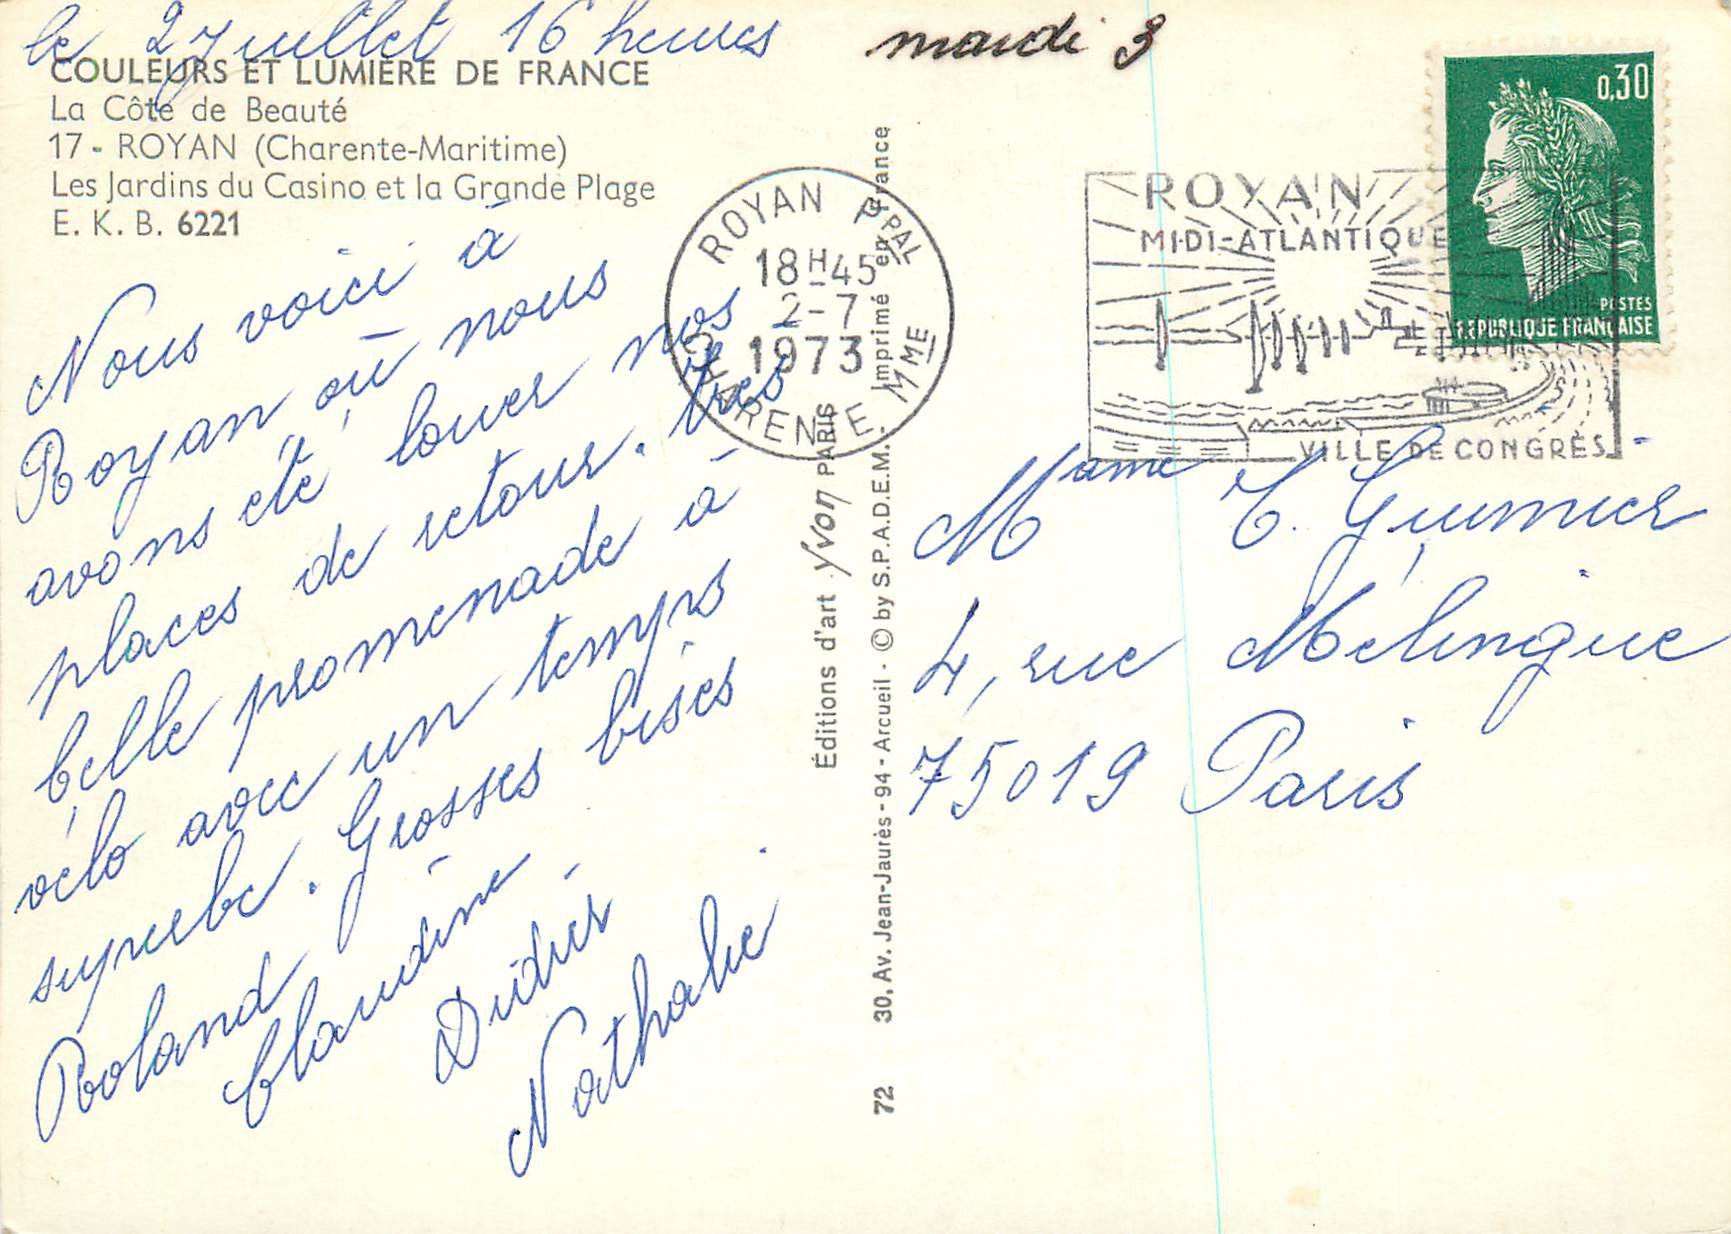 le 2 Juillet 16 heures
mardi 3
COULEURS ET LUMIÈRE DE FRANCE
La Côte de Beauté
17 - ROYAN (Charente-Maritime)
Les Jardins du Casino et la Grande Plage
E. K. B. 6221
Nous voici à
Royan où nous
avons été louer nos
places de retour. très
belle promenade à
vélo avec un temps
superbe. Grosses bises
Roland
Claudine
Didier
Nathalie
Éditions d'art Yvon PARIS
72 30, Av. Jean-Jaurès - 94 - Arcueil - © by S.P.A.D.E.M. - Imprimé en France
ROYAN PPAL
18H45
2-7
1973
CHARENTE MME
ROYAN
MIDI-ATLANTIQUE
VILLE DE CONGRÈS
0,30
POSTES
REPUBLIQUE FRANÇAISE
Mame C. Guimier
4, rue Mélingue
75019 Paris